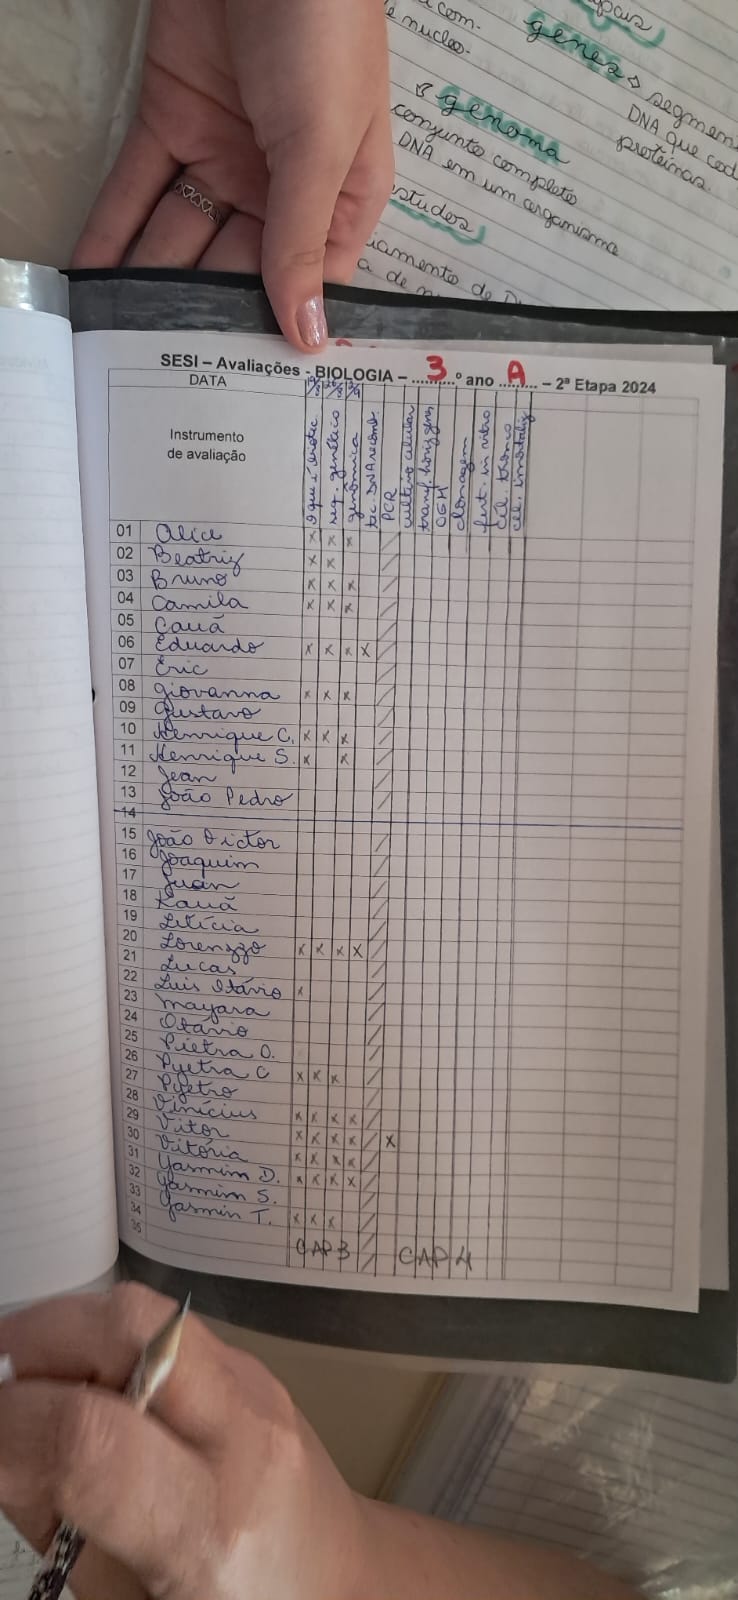 SESI – Avaliações - BIOLOGIA – ..... 3 º ano ..... A ..... – 2ª Etapa 2024
DATA
Instrumento
de avaliação
o que é biotec.
seq. genético
genômica
tec. DNA recomb.
PCR
cultivo celular
transf. horiz genes
OGM
clonagem
fert. in vitro
cél. tronco
cél. imortaliz
01 Alice x x x
02 Beatriz x x
03 Bruno x x x
04 Camila x x x
05 Cauã
06 Eduardo x x x x
07 Eric
08 Giovanna x x x
09 Gustavo
10 Henrique C. x x x
11 Henrique S. x x
12 Jean
13 João Pedro
14
15 João Victor
16 Joaquim
17 Juan
18 Kauã
19 Letícia
20 Lorenzzo x x x x
21 Lucas
22 Luis Otávio x
23 Mayara
24 Otávio
25 Pietra O.
26 Pietra C. x x x
27 Pietro
28 Vinícius x x x x
29 Vitor x x x x x
30 Vitória x x x x
31 Yasmim D. x x x x
32 Yasmim S.
33 Yasmin T. x x x
34
35
CAP 3
CAP 4
genes
segmen
DNA que cod
proteínas
genoma
conjunto completo
DNA em um organismo